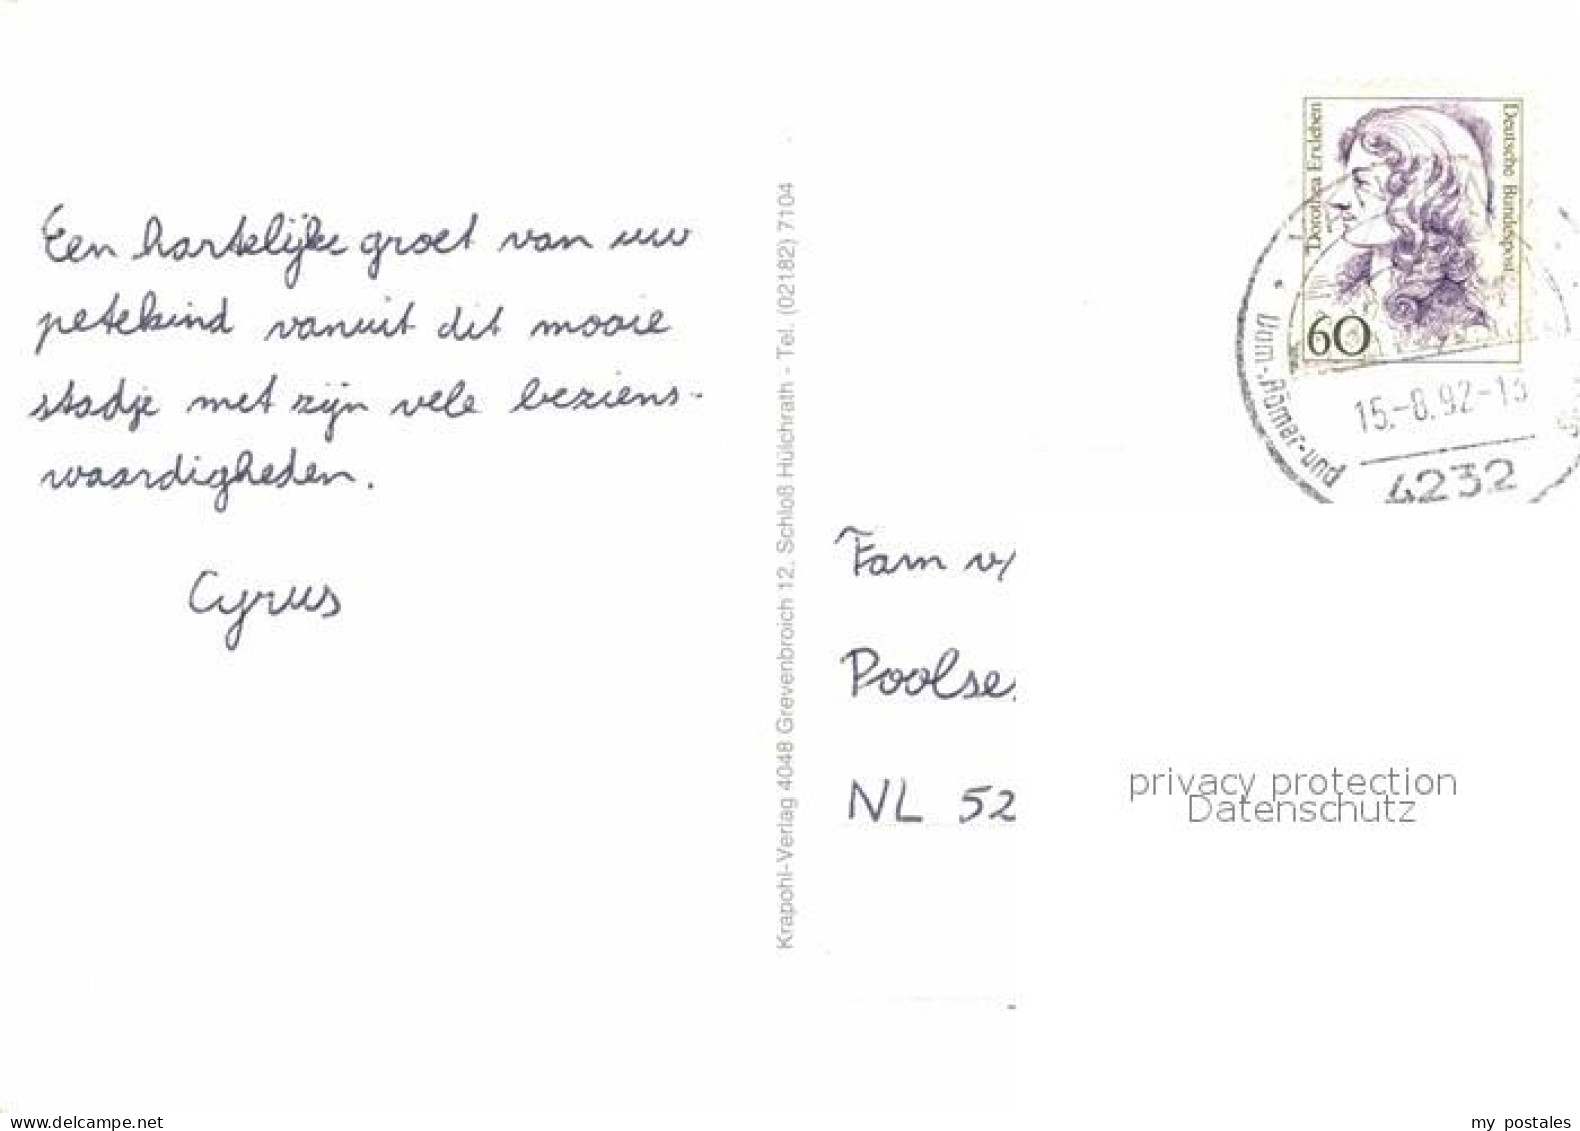 Een hartelijke groet van uw
petekind vanuit dit mooie
stadje met zijn vele beziens-
waardigheden.
Cyrus
Krapohl-Verlag 4048 Grevenbroich 12. Schloß Hülchrath - Tel. (02182) 7104
Dorothea Erxleben
Deutsche Bundespost
60
Dom-, Römer- und
15.-8.92-15
4232
Fam v/
Poolse
NL 52
privacy protection
Datenschutz
www.delcampe.net
my postales